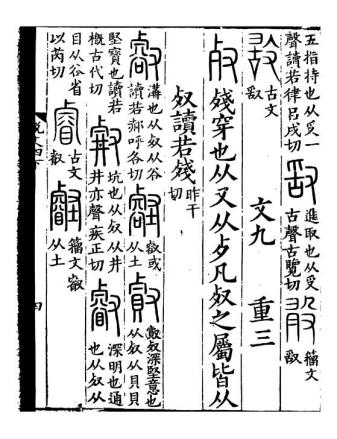 五指持也从𠬪一聲讀若律呂戌切 𠭖 進取也从𠬪古聲古覽切 𣪏 籒文𠭖
𢽤 古文𠭖 文九 重三
𣦼 殘穿也从又从歺凡𣦼之屬皆从
𣦼讀若殘 昨干切
㕡 溝也从𣦼从谷讀若郝呼各切 壑 㕡或从土 𧷎 𣦼深堅意也从𣦼从貝貝
堅寶也讀若概古代切 阱 坑也从𣦼从井井亦聲疾正切 叡 深明也通也从𣦼从
目从谷省以芮切 睿 古文叡 壡 籒文叡从土
說文四下 四